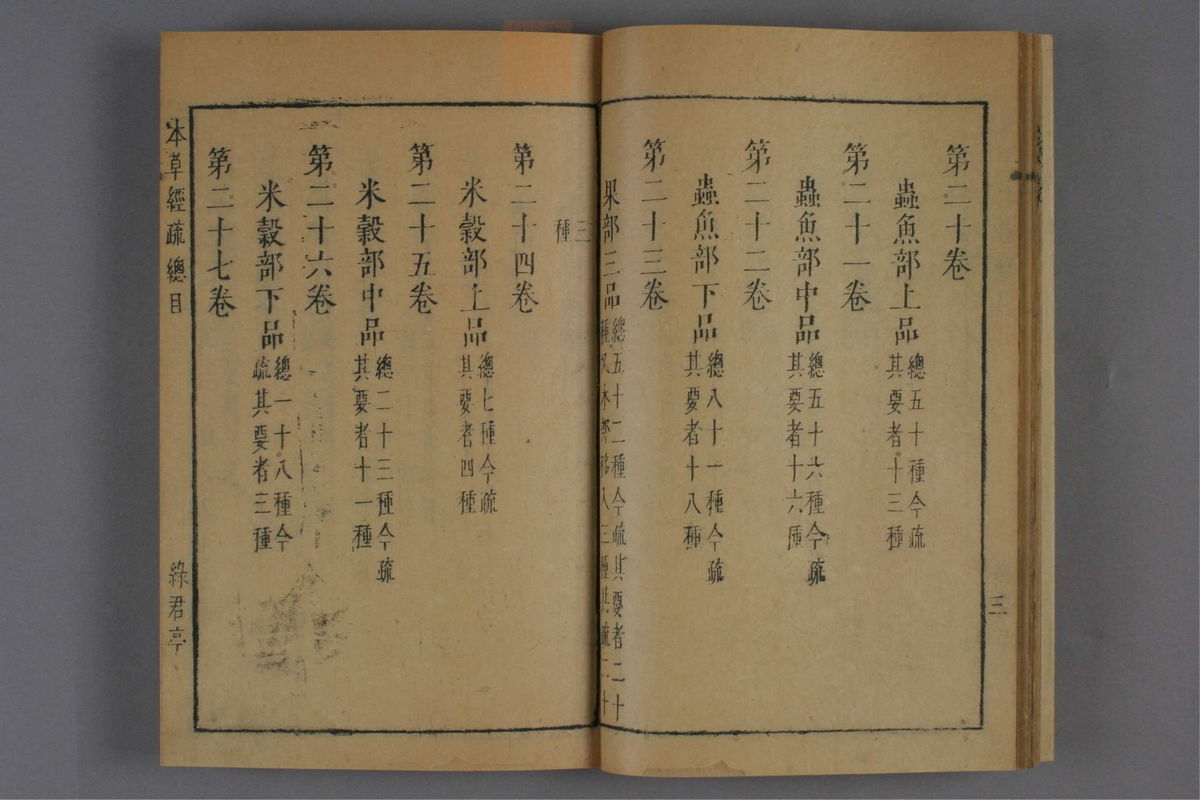 三
第二十卷
蟲魚部上品總五十種今疏
其要者十三種
第二十一卷
蟲魚部中品總五十六種今疏
其要者十六種
第二十二卷
蟲魚部下品總八十一種今疏
其要者十八種
第二十三卷
果部三品總五十二種今疏其要者二十
種又木部移入三種共疏二十
三
種
第二十四卷
米穀部上品總七種今疏
其要者四種
第二十五卷
米穀部中品總二十三種今疏
其要者十一種
第二十六卷
米穀部下品總一十八種今
疏其要者三種
第二十七卷
本草經疏總目
綠君亭